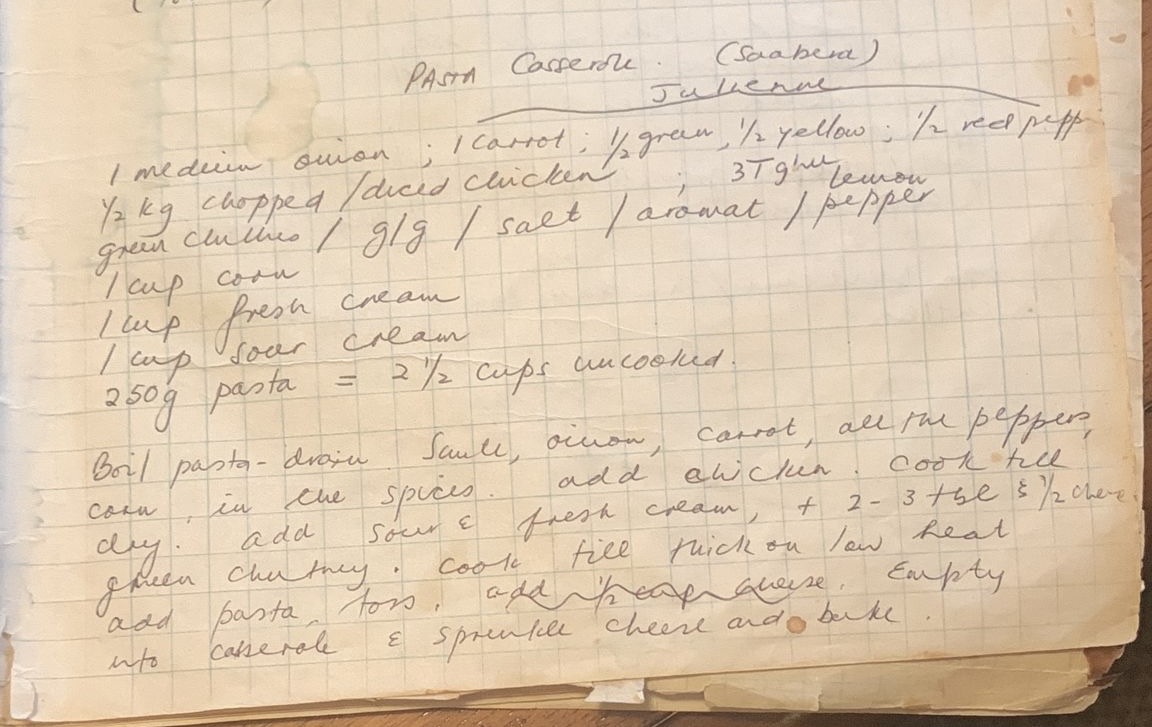 PASTA Casserole. (Saabera)
Julienne
1 medium onion ; 1 carrot ; 1/2 green, 1/2 yellow ; 1/2 red pepp
1/2 kg chopped / diced chicken ; 3T ghee
lemon
green chillies / g/g / salt / aromat / pepper
1 cup corn
1 cup fresh cream
1 cup sour cream
250g pasta = 2 1/2 cups uncooked.
Boil pasta - drain. Saute, onion, carrot, all the peppers,
corn, in the spices. add chicken. Cook till
dry. add sour & fresh cream, + 2-3 tbl & 1/2 chee
green chutney. Cook till thick on low heat
add pasta, toss. add 1/2 cup cheese. Empty
into casserole & sprinkle cheese and bake.